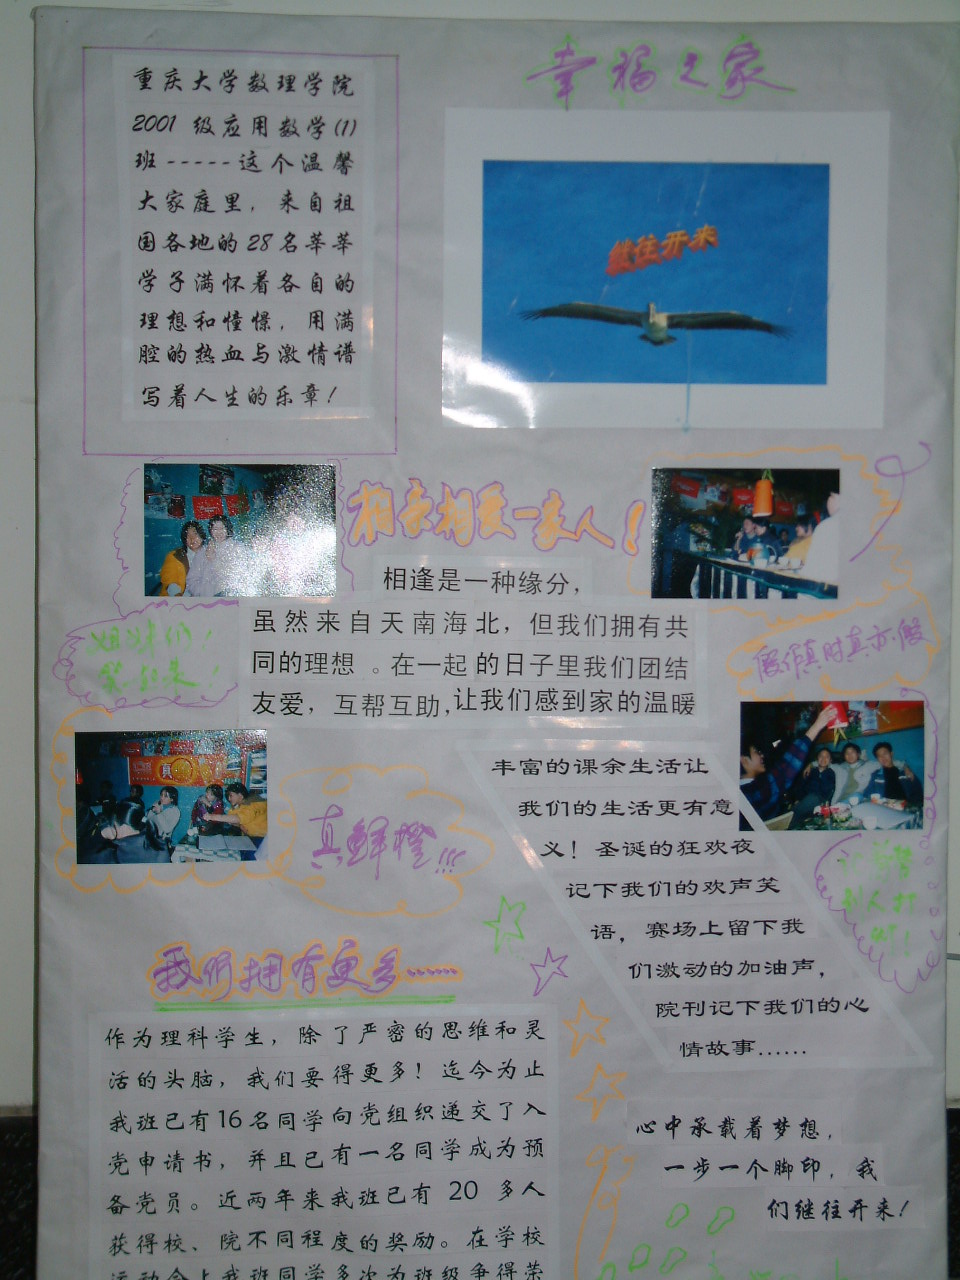 幸福之家
重庆大学数理学院
2001 级应用数学(1)
班-----这个温馨
大家庭里，来自祖
国各地的28名莘莘
学子满怀着各自的
理想和憧憬，用满
腔的热血与激情谱
写着人生的乐章！
继往开来
相亲相爱一家人！
相逢是一种缘分，
虽然来自天南海北，但我们拥有共
同的理想 。在一起 的日子里我们团结
友爱，互帮互助,让我们感到家的温暖
假作真时真亦假
真鲜橙!!!
丰富的课余生活让
我们的生活更有意
义！圣诞的狂欢夜
记下我们的欢声笑
语，赛场上留下我
们激动的加油声，
院刊记下我们的心
情故事……
我们拥有更多……
作为理科学生，除了严密的思维和灵
活的头脑，我们要得更多！迄今为止
我班已有16名同学向党组织递交了入
党申请书，并且已有一名同学成为预
备党员。近两年来我班已有 20 多人
获得校、院不同程度的奖励。在学校
运动会上我班同学多次为班级争得荣
心中承载着梦想，
一步一个脚印，我
们继往开来！